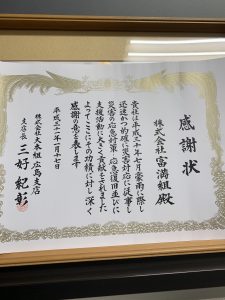 感謝状
株式会社富満組殿
貴社は平成三十年七月豪雨に際し
迅速かつ的確に災害対応に従事し
災害の応急対策・応急復旧並びに
支援活動に大きく貢献されました
よってここにその功績に対し深く
感謝の意を表します
平成三十一年一月十七日
株式会社大本組広島支店
支店長 三好紀彰